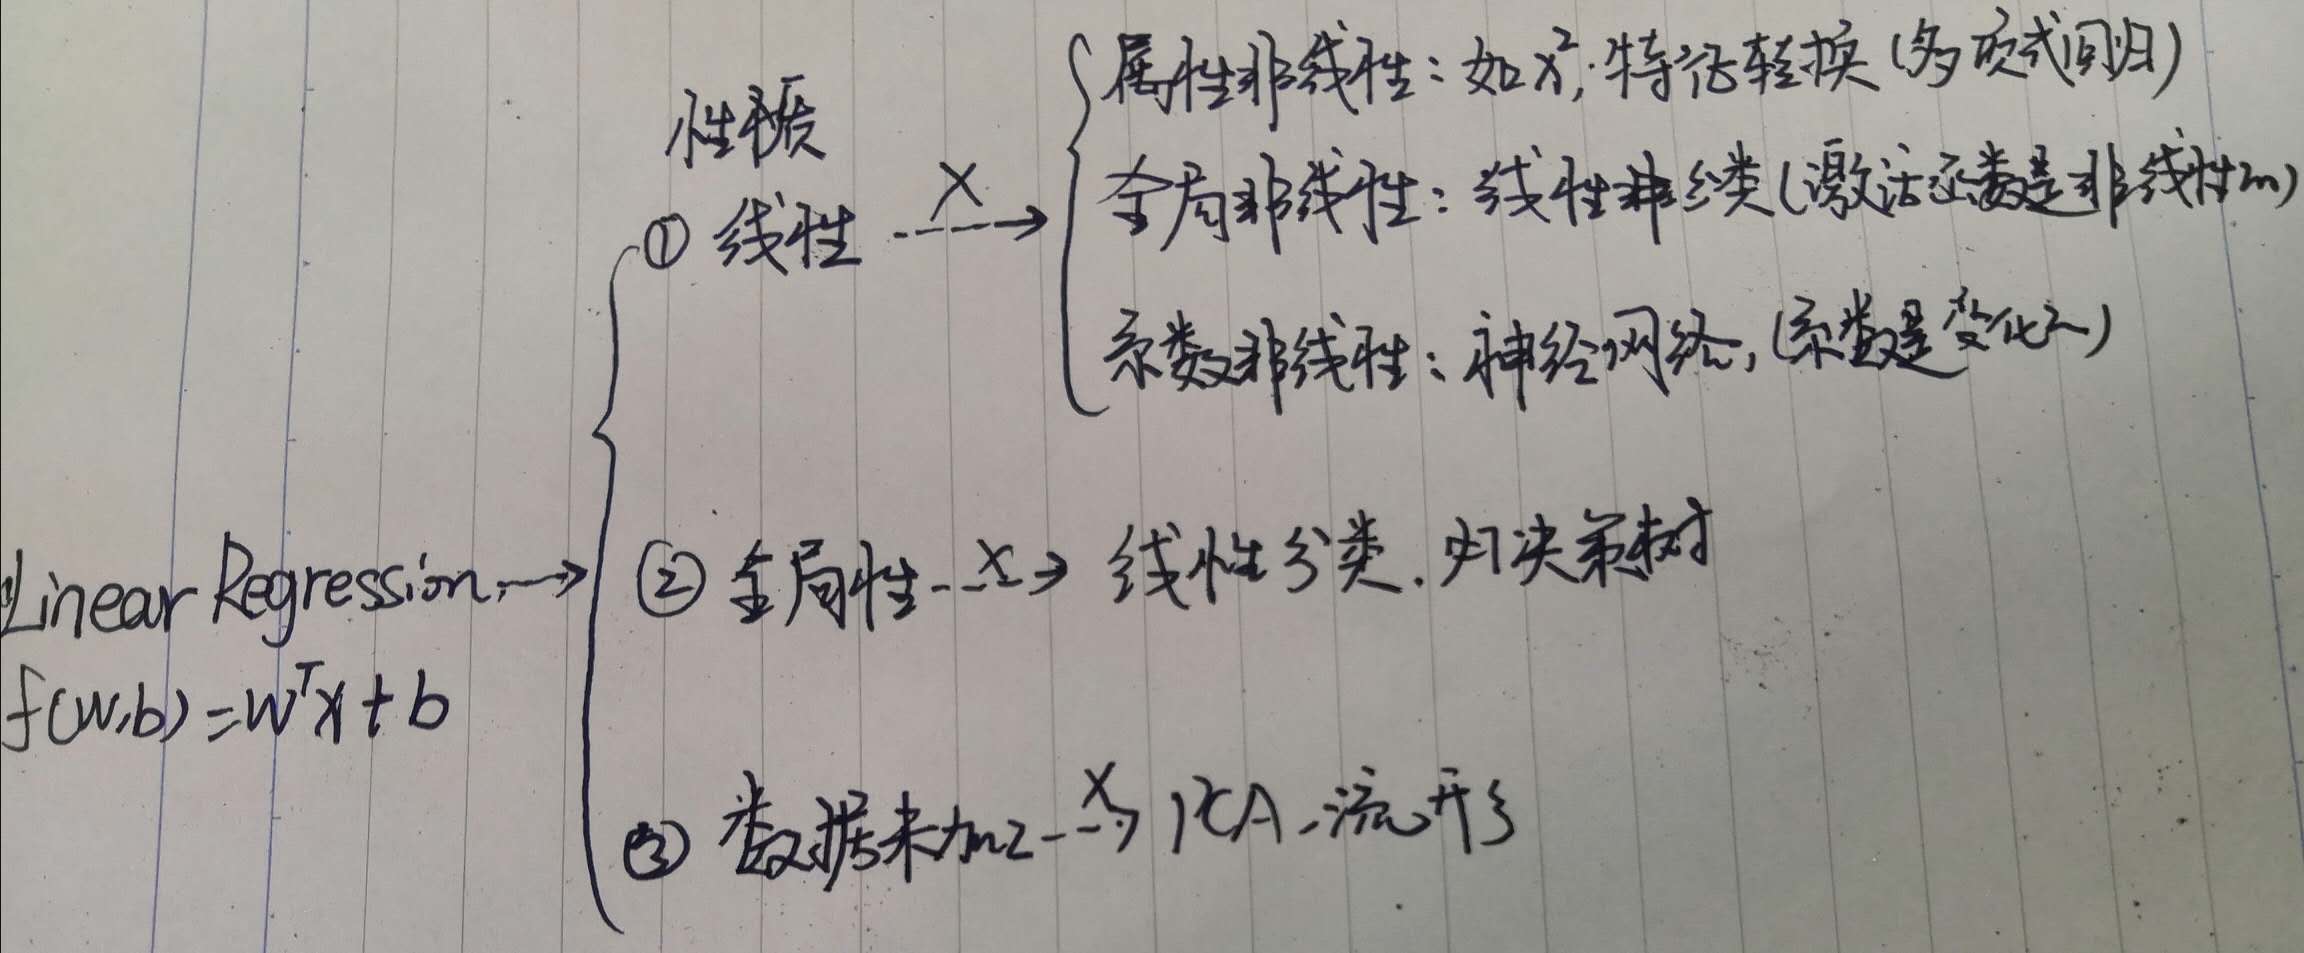 性质
① 线性 X
属性非线性：如x²，特征转换（多项式回归）
全局非线性：线性分类（激活函数是非线性的）
系数非线性：神经网络，（系数是变化的）
Linear Regression
f(w,b)=wᵀx+b
② 全局性 X 线性分类，决策树
③ 数据未加工 X PCA，流形